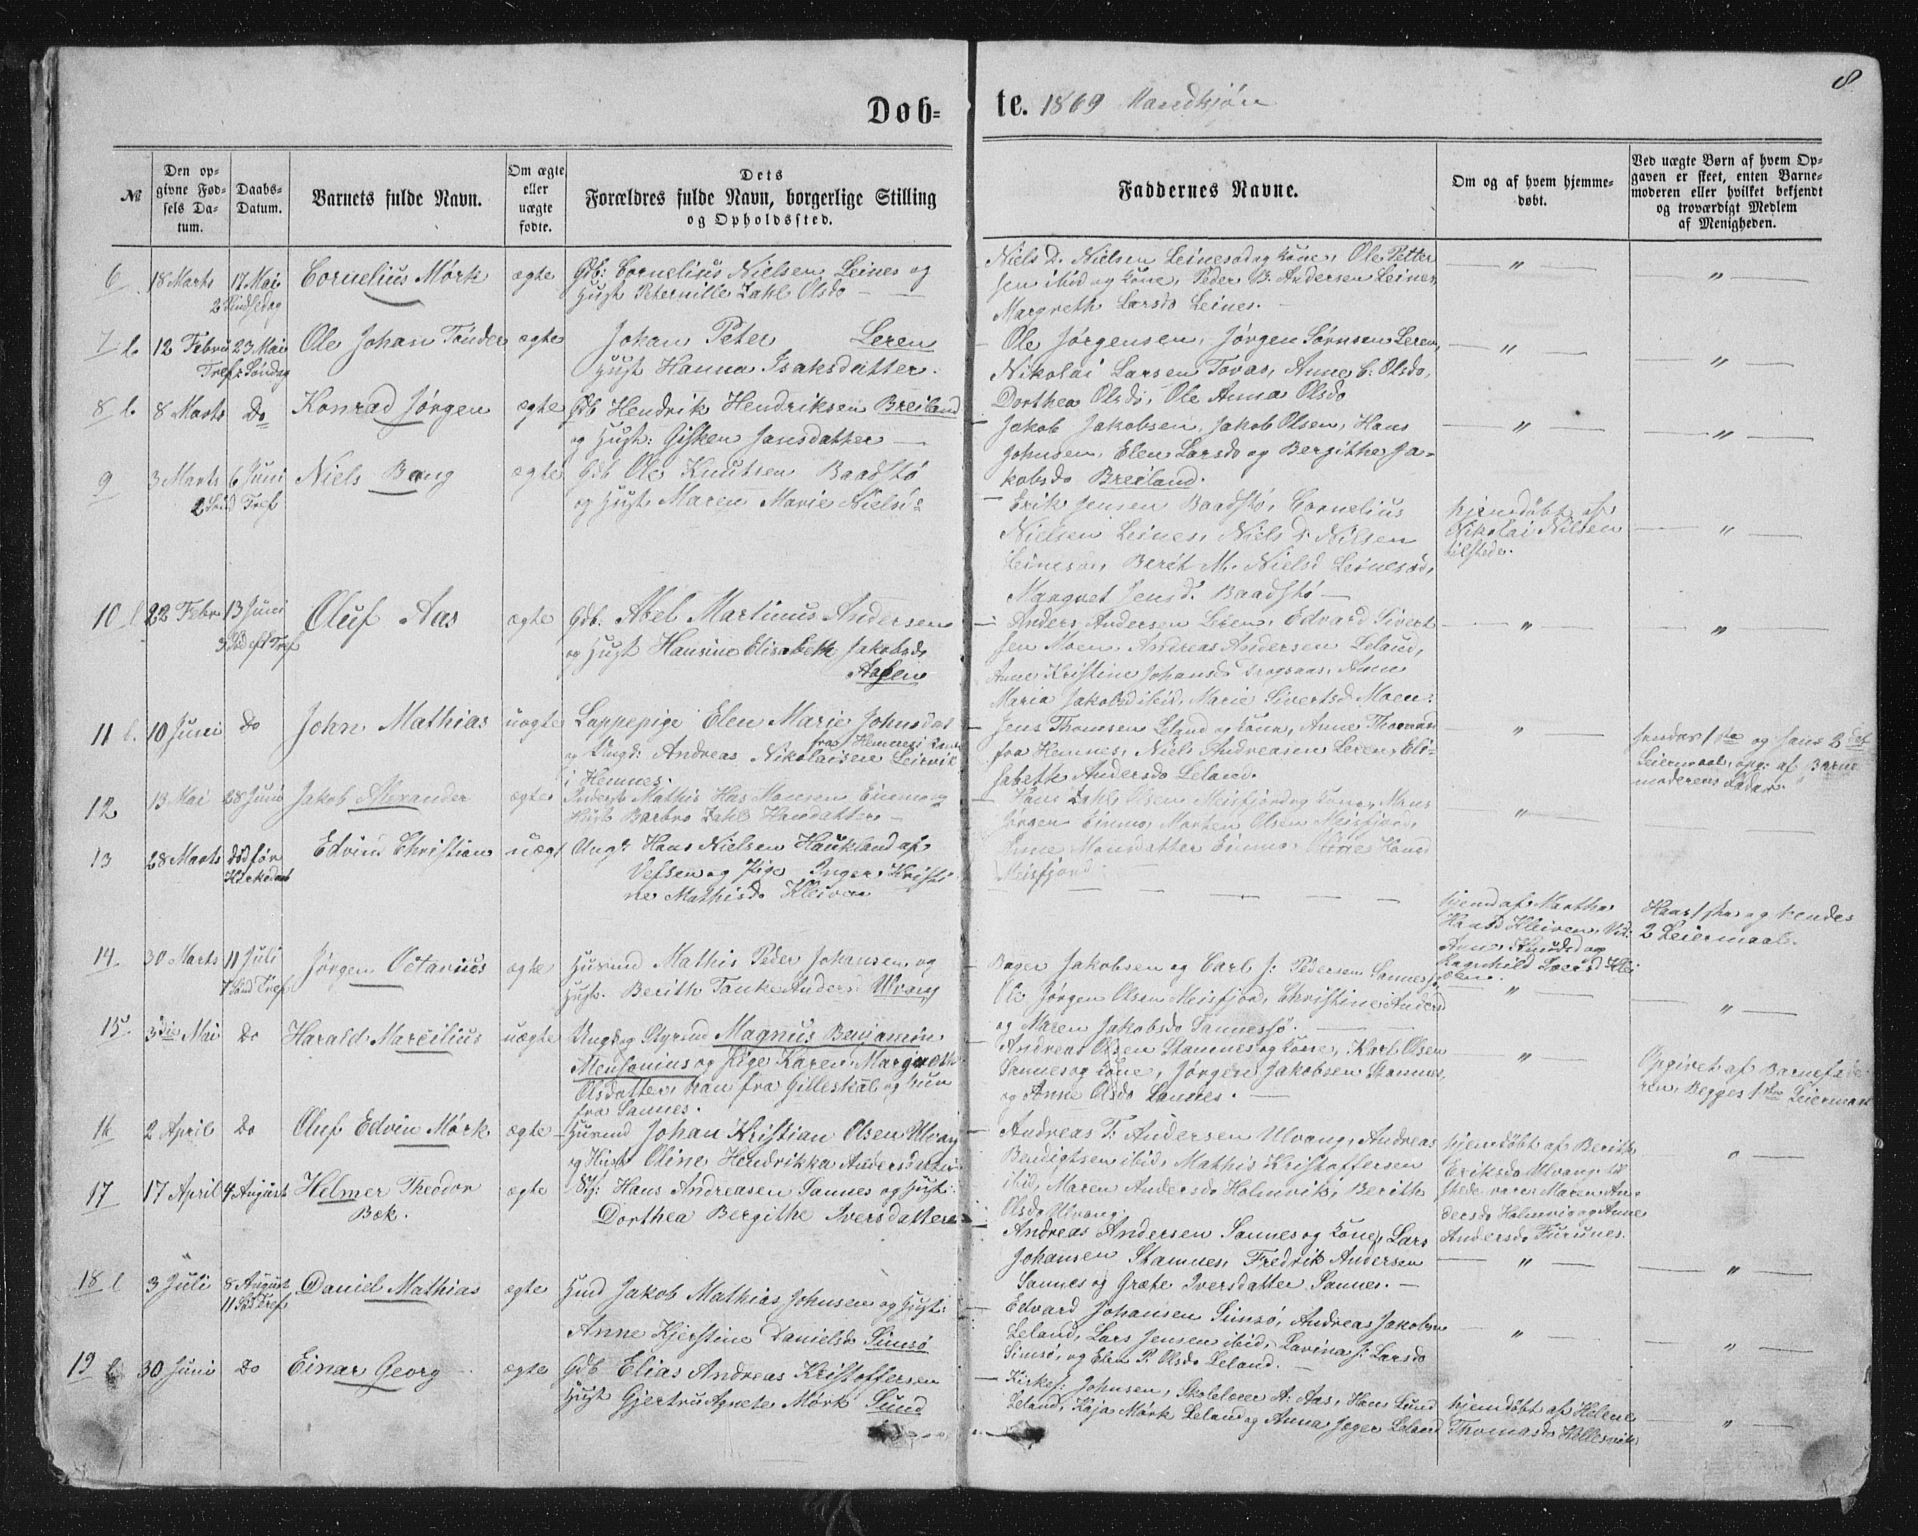 8
Døb-
te. 1869 Mandkjøn
№
Den op-
givne Fød-
sels Da-
tum.
Daabs-
Datum.
Barnets fulde Navn.
Om ægte
eller
uægte
fødte.
Dets
Forældres fulde Navn, borgerlige Stilling
og Opholdssted.
Faddernes Navne.
Om og af hvem hjemme-
døbt.
Ved uægte Børn af hvem Op-
gaven er skeet, enten Barne-
moderen eller hvilket bekjendt
og troværdigt Medlem
af Menigheden.
6 18 Marts 17 Mai Cornelius Mørk ægte Gdb: Cornelius Nielsen Leines og
Hust Peternille Dahl Olsdo
Niels D. Nielsen Leinesod og Kone, Ole Petter
sen ibid og Kone, Peder B. Andersen Leines,
Margreth Larsdo Leines.
7 l. 12 Febru 23 Mai Ole Johan Tønder ægte Johan Peter Leren
Tref: Søndag Hust Hanna Isaksdatter.
Ole Jørgensen, Jørgen Sørnsen Leren,
Nikolai Larsen Tovas, Anne C. Olsdo,
Dorthea Olsdo, Ole Anna Olsdo
8 l. 8 Marts Do Konrad Jørgen ægte Gdb Hendrik Hendriksen Breiland
og Hust: Gisken Jansdatter
Jakob Jakobsen, Jakob Olsen, Hans
Johnsen, Elen Larsdo og Bergithe Ja-
kobsdo Breiland.
9 3 Marts 6 Juni Niels Bang ægte Gdb Ole Knutsen Baadstø
og Hust Maren Marie Nielsd
Erik Jensen Baadstø, Cornelius
Nielsen Leines, Niels D. Nilsen
Leinesod, Berit M. Nielsd Leinesod,
Margret Jensd. Baadstø
hjemdøbt af
Nikolai Nilsen
tilstede.
10 l 22 Febr. 13 Juni Oluf Aas ægte Gdb: Abel Martinus Andersen
og Hust Hansine Elisabeth Jakobsdo
Aasen
Anders Andersen Leren, Edvard Sivert
sen Moen, Andreas Andersen Leland,
Anne Kristine Johansdo, Anne
Maria Jakobsd ibid, Marie Sivertsd Moen.
11 l. 10 Juni Do John Mathias uægte Lappepige Elen Marie Johnsdat
fra Hemnes
og Ungd: Andreas Nikolaisen Leirvik
i Hemnes.
Jens Thomsen Leland og Kone, Anne Thomasd
fra Hemnes, Niels Andreasen Leren, Eli-
sabeth Andersdo Leland.
hendes 1ste og hans 2det
Leiermaal, opg: af Barne
moderens Fader.
12 13 Mai 28 Juni Jakob Alexander ægte Mathis Monsen Einmo og
Hust Barbro Dahl Hansdatter
Hans Dahl Olsen Meisfjord og Kone, Mons
Jørgen Einmo, Morten Olsen Meisfjord,
Anne Monsdatter Einmo,
Meisfjord
13 28 Marts død før Edvin Christian uægt Ungd: Hans Nielsen Haukland af
Kirkedaab Vefsen og Pige Inger Kristi
ne Mathisdo Kleiven
hjemd af Martha
Hansd Kleiven, Vid:
Ragnhild
Hans 1ste og hendes
2 Leiermaal.
14 30 Marts 11 Juli Jørgen Octavius ægte Husmd Mathis Peder Johansen og
Hust. Berith Tanke Anders. Ulvang
Jakobsen og Carl J: Pedersen Sannesø,
Ole Jørgen Olsen Meisfjord, Christine Andersd
og Maren Jakobsdo Sannessø.
15 3die Mai Do Harald Marcilius uægte Ungd og Styrmd Magnus Benjamin
Mensonius og Pige Karen Margreth
Olsdatter, han fra Gilleskaal og hun
fra Sannes.
Andreas Olsen Stamnes og Kone, Karl Olsen
Sannes og Kone, Jørgen Jakobsen Stamnes,
og Anne Olsdo Sannes.
Opgivet af Barnefade-
ren, Begges 1ste Leiermaal
16 2 April Do Oluf Edvin Mørk ægte Husmd Johan Kristian Olsen Ulvang
og Hust Oline Hendrikka Andersdatter
Andreas T: Andersen Ulvang, Andreas
Bendigtsen ibid, Mathis Kristoffersen
ibid, Maren Andersdo Holmvik, Berith
Olsdo Ulvang.
hjemdøbt af Berith
Eriksdo Ulvang, til
stede varer Maren An-
dersdo Holmvig og Anne
Andersdo Furunes.
17 17 April 4 August Helmer Theodor ægte Hans Andreasen Sannes og Hust:
Bæk. Dorthea Bergithe Iversdatter
Andreas Andersen Sannes og Kone, Lars
Johansen Stamnes, Fredrik Andersen
Sannes og Græte Iversdatter Sannes.
18 l 3 Juli 8 August Daniel Mathias ægte Hmd Jakob Mathias Johnsen og Hust:
Anne Kjerstine Danielsdo Simsø
Edvard Johansen Simsø, Andreas Jakobsen
Leland, Lars Jensen ibid, Lavina J: Larsdo
Simsø, og Elen P. Olsdo Leland.
19 l 30 Juni Do Einar Georg ægte Gdb Elias Andreas Kristoffersen
Hust Gjertru Agnete Mørk Sund
Kirkes: Johnsen, Skolelærer A: Aas, Hans Lund
Leland, Kaja Mørk Leland og Anna Jæger Leland
hjemdøbt af Helene
Thomasd Hellesvik